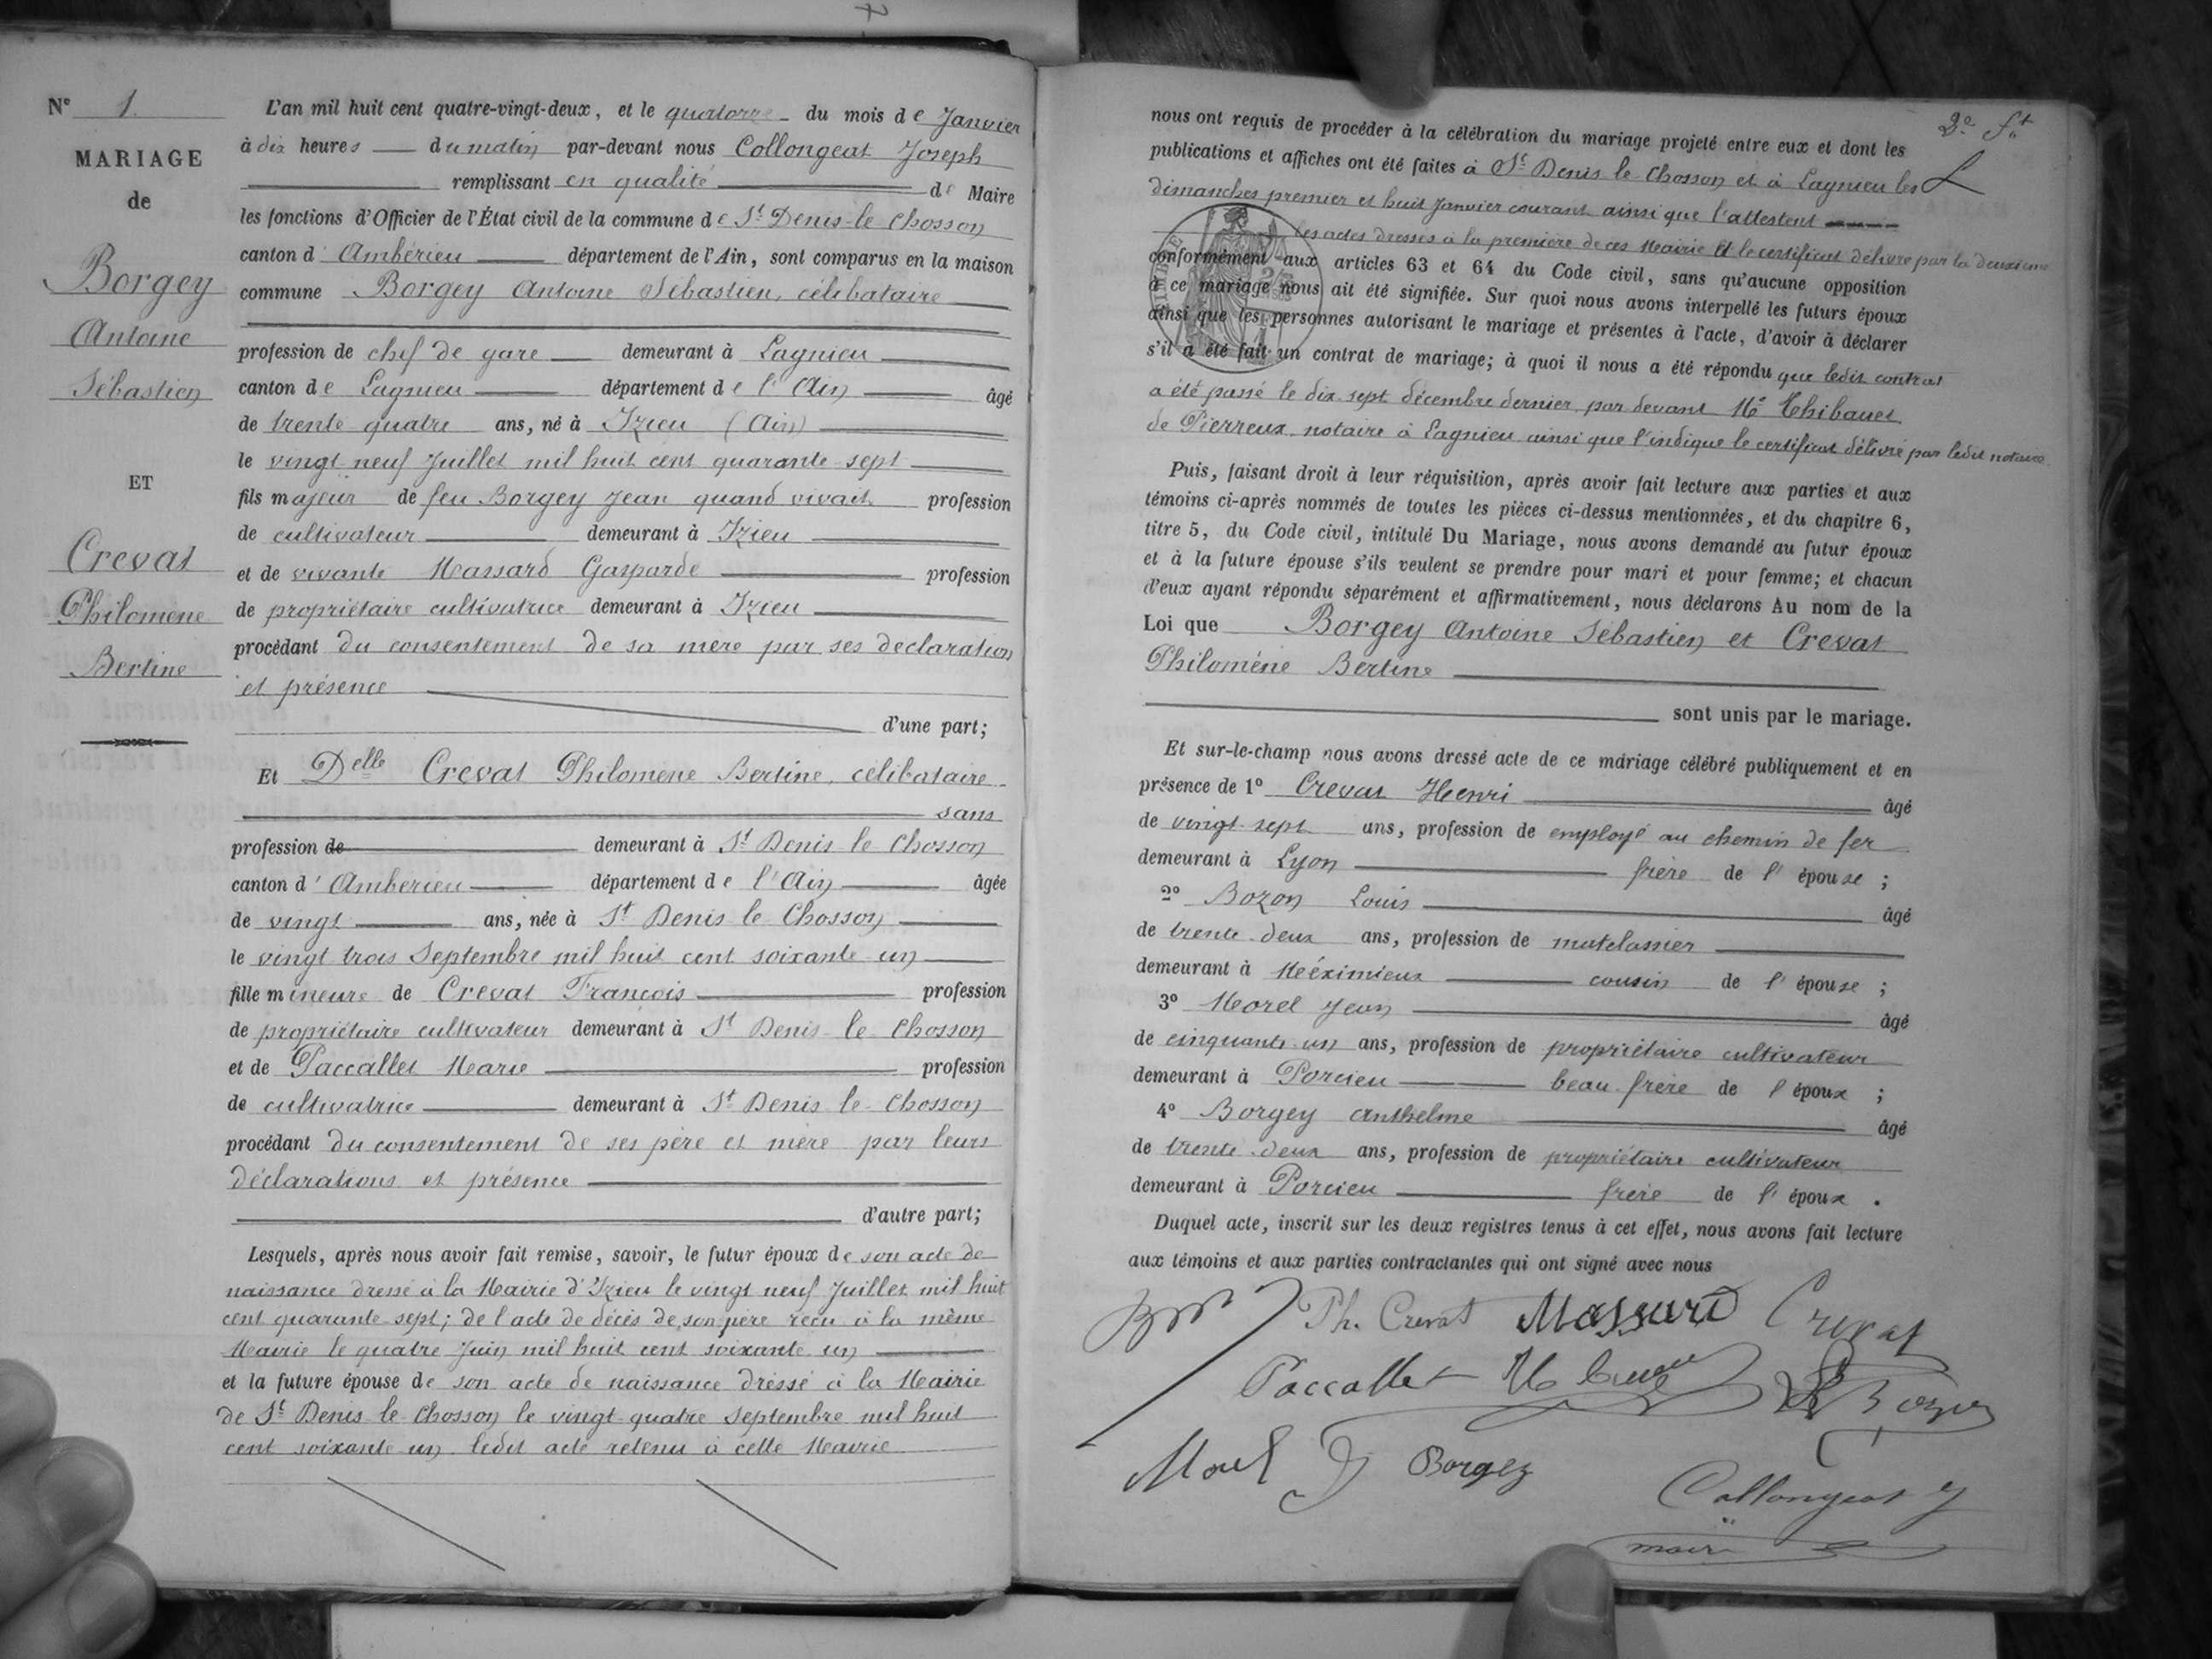 N° 1.
MARIAGE
de
Borgey
Antoine
Sébastien
ET
Crevat
Philomène
Bertine
L'an mil huit cent quatre-vingt-deux, et le quatorze du mois de Janvier
à dix heures du matin par-devant nous Collongeat Joseph
remplissant en qualité de Maire
les fonctions d'Officier de l'État civil de la commune de St Denis-le-Chosson
canton d'Ambérieu département de l'Ain, sont comparus en la maison
commune Borgey Antoine Sébastien, célibataire
profession de chef de gare demeurant à Lagnieu
canton de Lagnieu département de l'Ain âgé
de trente quatre ans, né à Izieu (Ain)
le vingt neuf Juillet mil huit cent quarante-sept
fils majeur de feu Borgey Jean quand vivait profession
de cultivateur demeurant à Izieu
et de vivante Massard Gasparde profession
de propriétaire cultivatrice demeurant à Izieu
procédant du consentement de sa mère par ses declaration
et présence
d'une part;
Et Delle Crevat Philomène Bertine, célibataire
sans
profession de demeurant à St Denis-le Chosson
canton d'Amberieu département de l'Ain âgée
de vingt ans, née à St Denis le Chosson
le vingt trois Septembre mil huit cent soixante-un
fille mineure de Crevat François profession
de propriétaire cultivateur demeurant à St Denis-le-Chosson
et de Paccallet Marie profession
de cultivatrice demeurant à St Denis le-Chosson
procédant du consentement de ses père et mère par leurs
déclarations et présence
d'autre part;
Lesquels, après nous avoir fait remise, savoir, le futur époux de son acte de
naissance dressé à la Mairie d'Izieu le vingt neuf Juillet mil huit
cent quarante-sept; de l'acte de décès de son père reçu à la même
Mairie le quatre Juin mil huit cent soixante-un
et la future épouse de son acte de naissance dressé à la Mairie
de St Denis-le-Chosson le vingt-quatre Septembre mil huit
cent soixante-un. ledit acte retenu à cette Mairie
2e ft
nous ont requis de procéder à la célébration du mariage projeté entre eux et dont les
publications et affiches ont été faites à St Denis-le-Chosson et à Lagnieu les
dimanches premier et huit Janvier courant ainsi que l'attestent
les actes dressés à la première de ces Mairie et le certificat délivré par la deuxième
conformément aux articles 63 et 64 du Code civil, sans qu'aucune opposition
à ce mariage nous ait été signifiée. Sur quoi nous avons interpellé les futurs époux
ainsi que les personnes autorisant le mariage et présentes à l'acte, d'avoir à déclarer
s'il a été fait un contrat de mariage; à quoi il nous a été répondu que ledit contrat
a été passé le dix-sept décembre dernier par devant Me Thibauet
de Pierreux, notaire à Lagnieu ainsi que l'indique le certificat délivré par ledit notaire
Puis, faisant droit à leur réquisition, après avoir fait lecture aux parties et aux
témoins ci-après nommés de toutes les pièces ci-dessus mentionnées, et du chapitre 6,
titre 5, du Code civil, intitulé Du Mariage, nous avons demandé au futur époux
et à la future épouse s'ils veulent se prendre pour mari et pour femme; et chacun
d'eux ayant répondu séparément et affirmativement, nous déclarons Au nom de la
Loi que Borgey Antoine Sébastien et Crevat
Philomène Bertine
sont unis par le mariage.
Et sur-le-champ nous avons dressé acte de ce mariage célébré publiquement et en
présence de 1° Crevat Henri âgé
de vingt-sept ans, profession de employé au chemin de fer
demeurant à Lyon frère de l'épouse;
2° Bozon Louis âgé
de trente-deux ans, profession de matelassier
demeurant à Méximieux cousin de l'épouse;
3° Morel Jean âgé
de cinquante-un ans, profession de propriétaire cultivateur
demeurant à Porcieu beau-frère de l'époux;
4° Borgey Anthelme âgé
de trente-deux ans, profession de propriétaire cultivateur
demeurant à Porcieu frère de l'époux.
Duquel acte, inscrit sur les deux registres tenus à cet effet, nous avons fait lecture
aux témoins et aux parties contractantes qui ont signé avec nous
Ph. Crevat Massard Crevat
Paccallet Bozon
Morel J Borgey
Collongeat J
maire